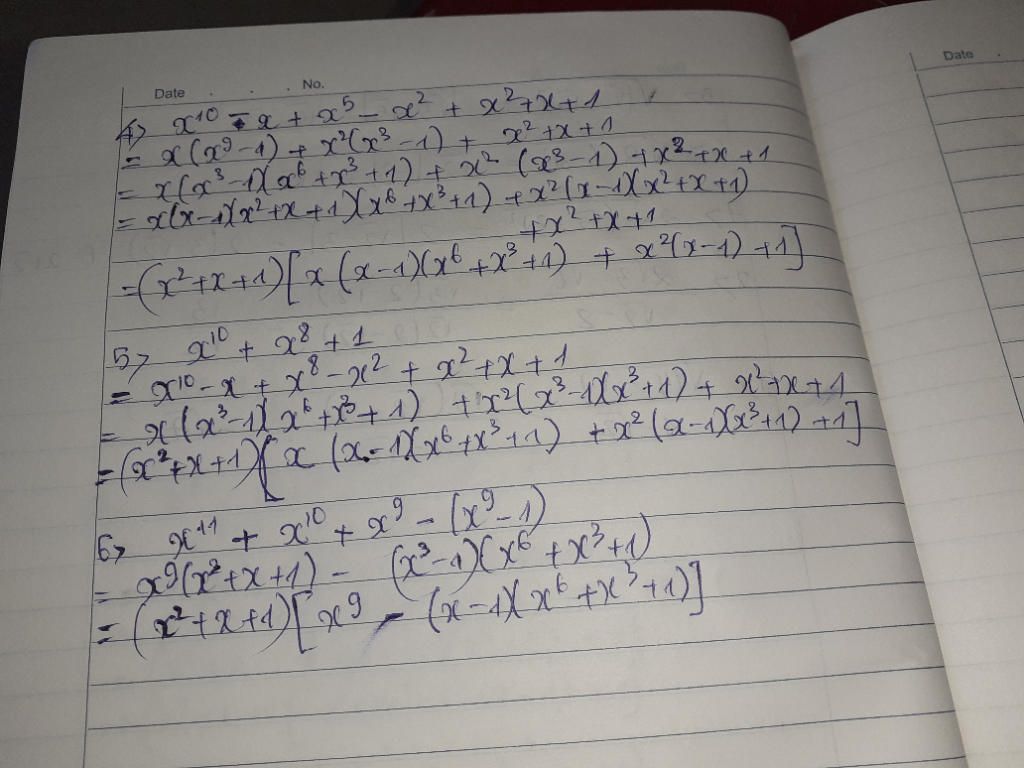 Date . . . No.
Date .
4> x¹⁰ - x + x⁵ - x² + x² + x + 1
= x(x⁹ - 1) + x²(x³ - 1) + x² + x + 1
= x(x³ - 1)(x⁶ + x³ + 1) + x² (x³ - 1) + x² + x + 1
= x(x - 1)(x² + x + 1)(x⁶ + x³ + 1) + x²(x - 1)(x² + x + 1)
+ x² + x + 1
= (x² + x + 1)[x (x - 1)(x⁶ + x³ + 1) + x²(x - 1) + 1]
5> x¹⁰ + x⁸ + 1
= x¹⁰ - x + x⁸ - x² + x² + x + 1
= x(x³ - 1)(x⁶ + x³ + 1) + x²(x³ - 1)(x³ + 1) + x² + x + 1
= (x² + x + 1)[x (x - 1)(x⁶ + x³ + 1) + x²(x - 1)(x³ + 1) + 1]
6> x¹¹ + x¹⁰ + x⁹ - (x⁹ - 1)
= x⁹(x² + x + 1) - (x³ - 1)(x⁶ + x³ + 1)
= (x² + x + 1)[x⁹ - (x - 1)(x⁶ + x³ + 1)]